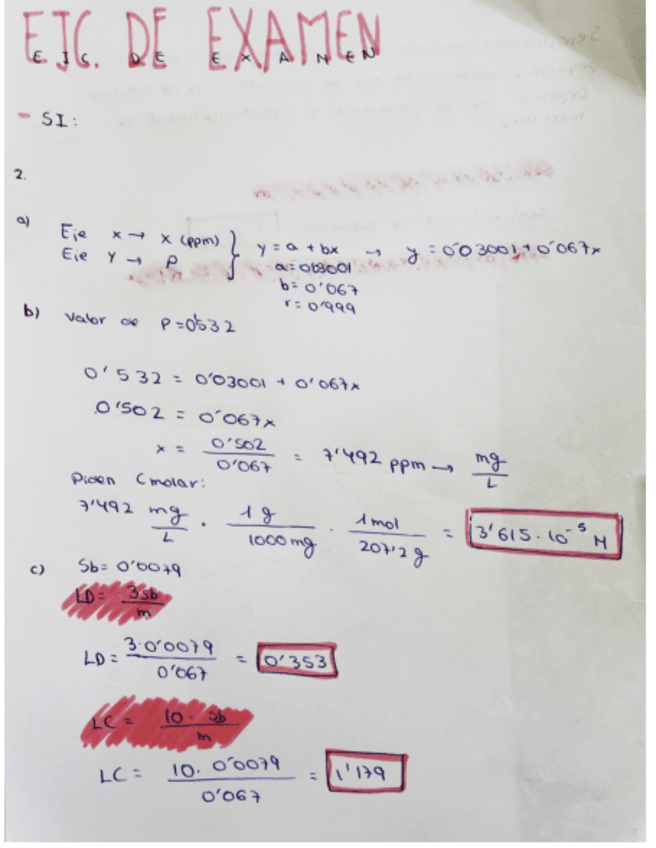 EJC. DE EXAMEN
EJC. DE EXAMEN
- SI:
2.
a) Eje x → x (ppm) } y = a + bx → y = 0'03001 + 0'067x
Eje y → P
a = 0'03001
b = 0'067
r = 0'999
b) Valor de P = 0'532
0'532 = 0'03001 + 0'067x
0'502 = 0'067x
x = 0'502 / 0'067 = 7'492 ppm → mg / L
Piden Cmolar:
7'492 mg / L · 1 g / 1000 mg · 1 mol / 207'2 g = 3'615 · 10⁻⁵ M
c) Sb = 0'0079
LD = 3Sb / m
LD = 3·0'0079 / 0'067 = 0'353
LC = 10 · Sb / m
LC = 10 · 0'0079 / 0'067 = 1'179